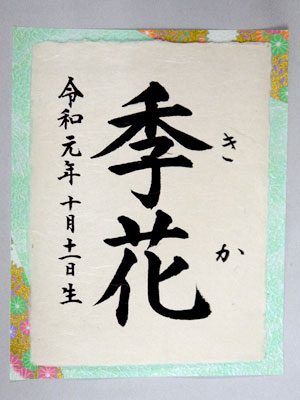 きか
季花
令和元年十月十一日生